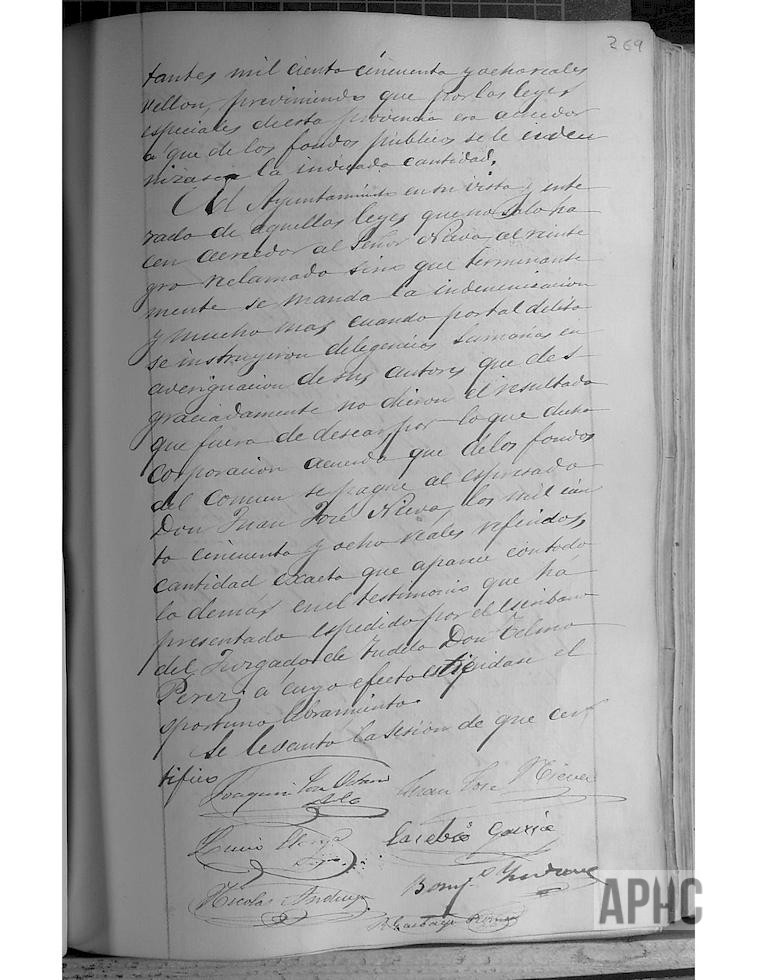 269
tantes mil ciento cincuenta y ocho reales
vellon, previniendo que por las leyes
especiales de esta provincia era acreedor
a que de los fondos publicos se le indem
nizase la indicada cantidad.
El Ayuntamiento en su vista y ente
rado de aquellas leyes que no solo ha
cen acreedor al Señor Nieva al reinte
gro reclamado sino que terminante
mente se manda la indemnizacion
y mucho mas cuando por tal delito
se instruyeron deligencias sumarias en
averiguacion de sus autores que des
graciadamente no dieron el resultado
que fuera de desear, por lo que dicha
Corporacion acuerda que de los fondos
del comun se pague al espresado
Don Juan José Nieva los mil cien
to cincuenta y ocho reales referidos,
cantidad exacta que aparece con todo
lo demas en el testimonio que ha
presentado espedido por el Escribano
del Juzgado de Tudela Don Telmo
Perez; a cuyo efecto estiendase el
oportuno libramiento.
Se levanto la sesion de que cer
tifico
Joaquin
Juan José Nieva
Lucio
Eusebio Garcia
Nicolas Andueza
APHC